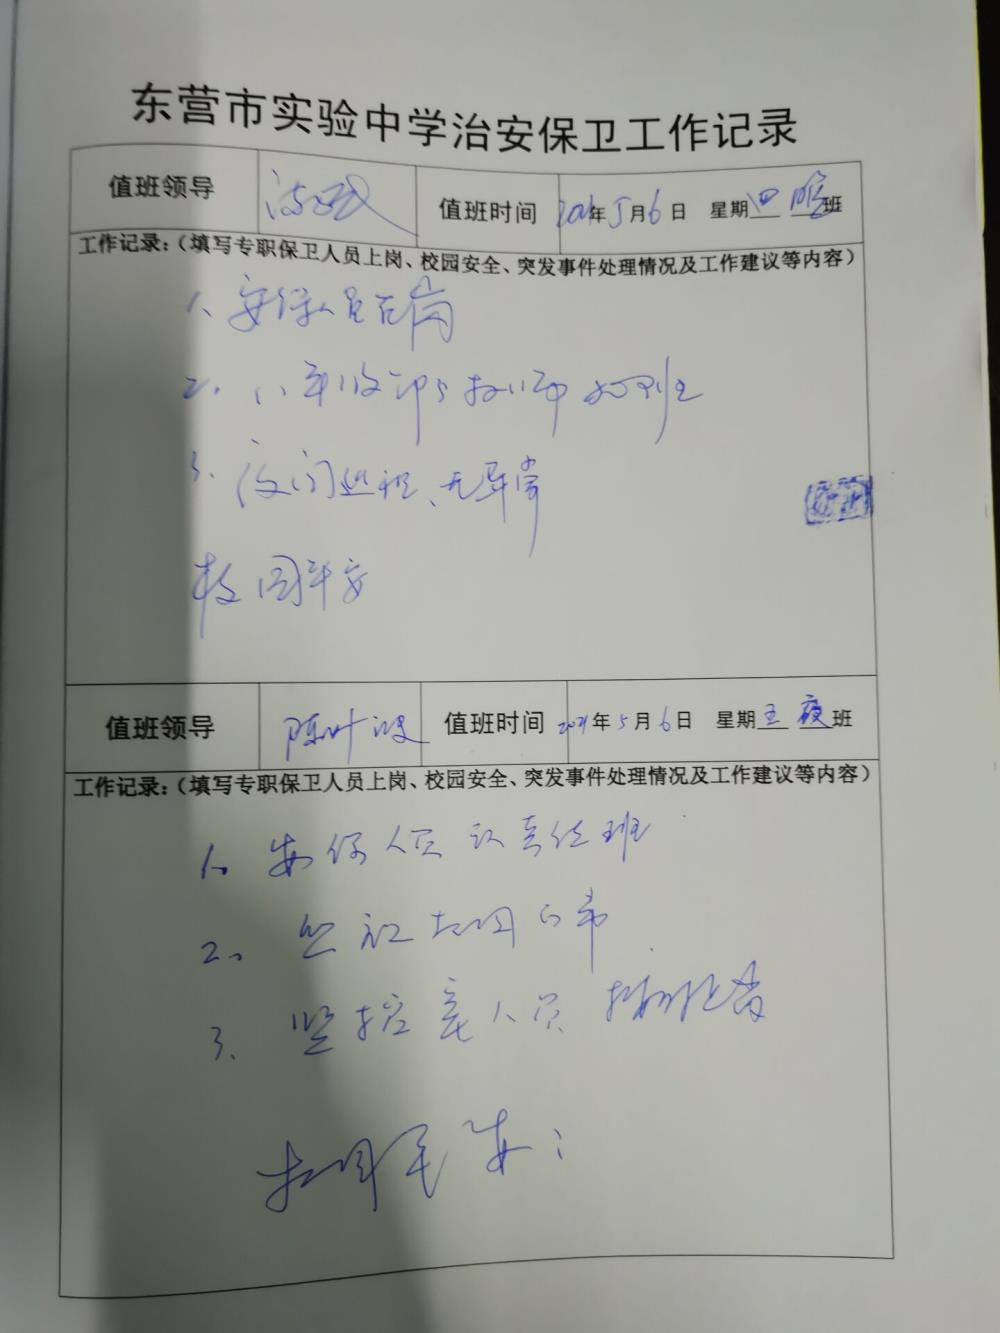 东营市实验中学治安保卫工作记录
值班领导 值班时间 2021年5月6日 星期四 晚班
工作记录：（填写专职保卫人员上岗、校园安全、突发事件处理情况及工作建议等内容）
1、安保人员在岗
2. 八年级 教师 班
3. 夜间巡视、无异常
校园平安
值班领导 陈叶波 值班时间 2021年5月6日 星期五 夜班
工作记录：（填写专职保卫人员上岗、校园安全、突发事件处理情况及工作建议等内容）
1. 安保人员认真值班
2. 巡视校园
3. 监控室人员
校园平安；